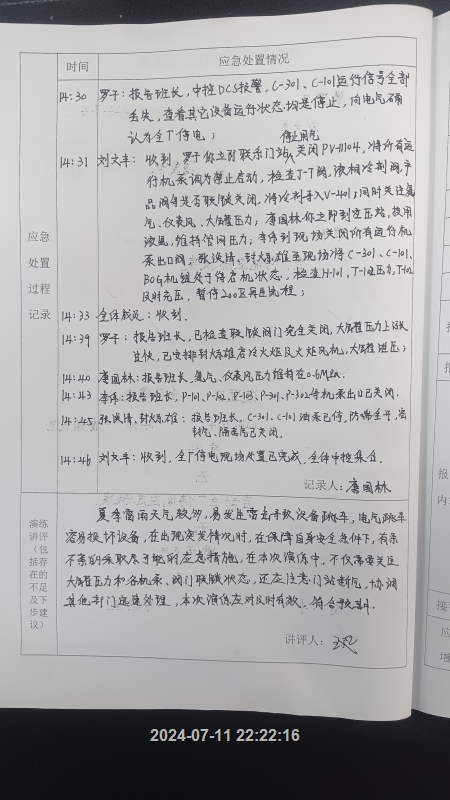 时间 应急处置情况
14:30 罗子:报告班长,中控DCS报警,C-301、C-101运行信号全部
丢失,查看其它设备运行状态均是停止,向电气确
认为全厂停电;
停止用气
14:31 刘文丰:收到,罗子你立即联系门站关闭PV-11104,将所有运
行机泵调为禁止启动,检查J-T阀,液相冷剂阀,产
品阀等是否联锁关闭,将冷剂导入V-401;同时关注氮
气、仪表风、大罐压力;唐国林你立即到空压站,投用
液氮,维持管网压力;李伟到现场关闭所有运行机
泵出口阀,张洪涛、封大雄至现场将C-301、C-101、
BOG机组处于停启机状态,检查H-101、T-102压力,
及时充压,暂停200区再生流程;
应急
处置
过程
记录
14:33 全体成员:收到.
14:39 罗子:报告班长,已检查联锁阀门完全关闭,大罐压力上涨
14:40 唐国林:报告班长,氮气、仪表风压力维持在0.6Mpa.
14:43 李伟:报告班长,P-101、P-102、P-103、P-301、P-302待机泵出口已关闭.
14:45 张洪涛、封大雄:报告班长,C-301、C-101油泵已停,防喘全开,密
封气、隔离气已关闭.
14:46 刘文丰:收到,全厂停电现场处置已完成,全体中控集合.
记录人:唐国林
演练
讲评
(包
括存
在的
不足
及下
步建
议)
夏季雷雨天气较多,易发生雷击导致设备跳车,电气跳车
容易损坏设备,在出现突发情况时,在保障自身安全条件下,有条
不紊的采取尽可能的应急措施,在本次演练中,不仅需要关注
大罐压力和各机泵、阀门联锁状态,还应注意门站断气,协调
其他部门迅速处理,本次演练应对及时有效,符合预期.
讲评人:
报
内
接
应
增
2024-07-11 22:22:16